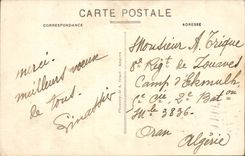 CARTE POSTALE
CORRESPONDANCE
ADRESSE
merci.
meilleurs vœux
de tous.
Monsieur A. Trique
8e Régt de Zouaves
Camp d'
Cie 2e Baton
No 3836.
Oran
Algérie